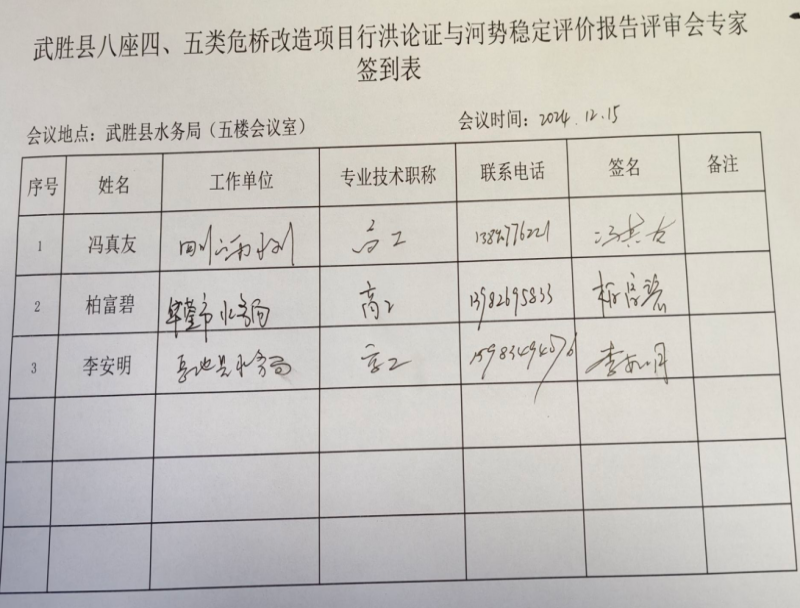 武胜县八座四、五类危桥改造项目行洪论证与河势稳定评价报告评审会专家
签到表
会议地点：武胜县水务局（五楼会议室） 会议时间：2024.12.15
序号 姓名 工作单位 专业技术职称 联系电话 签名 备注
1 冯真友 四川 高工 冯真友
2 柏富碧 华蓥市水务局 高工 13982695833 柏富碧
3 李安明 岳池县水务局 高工 李安明